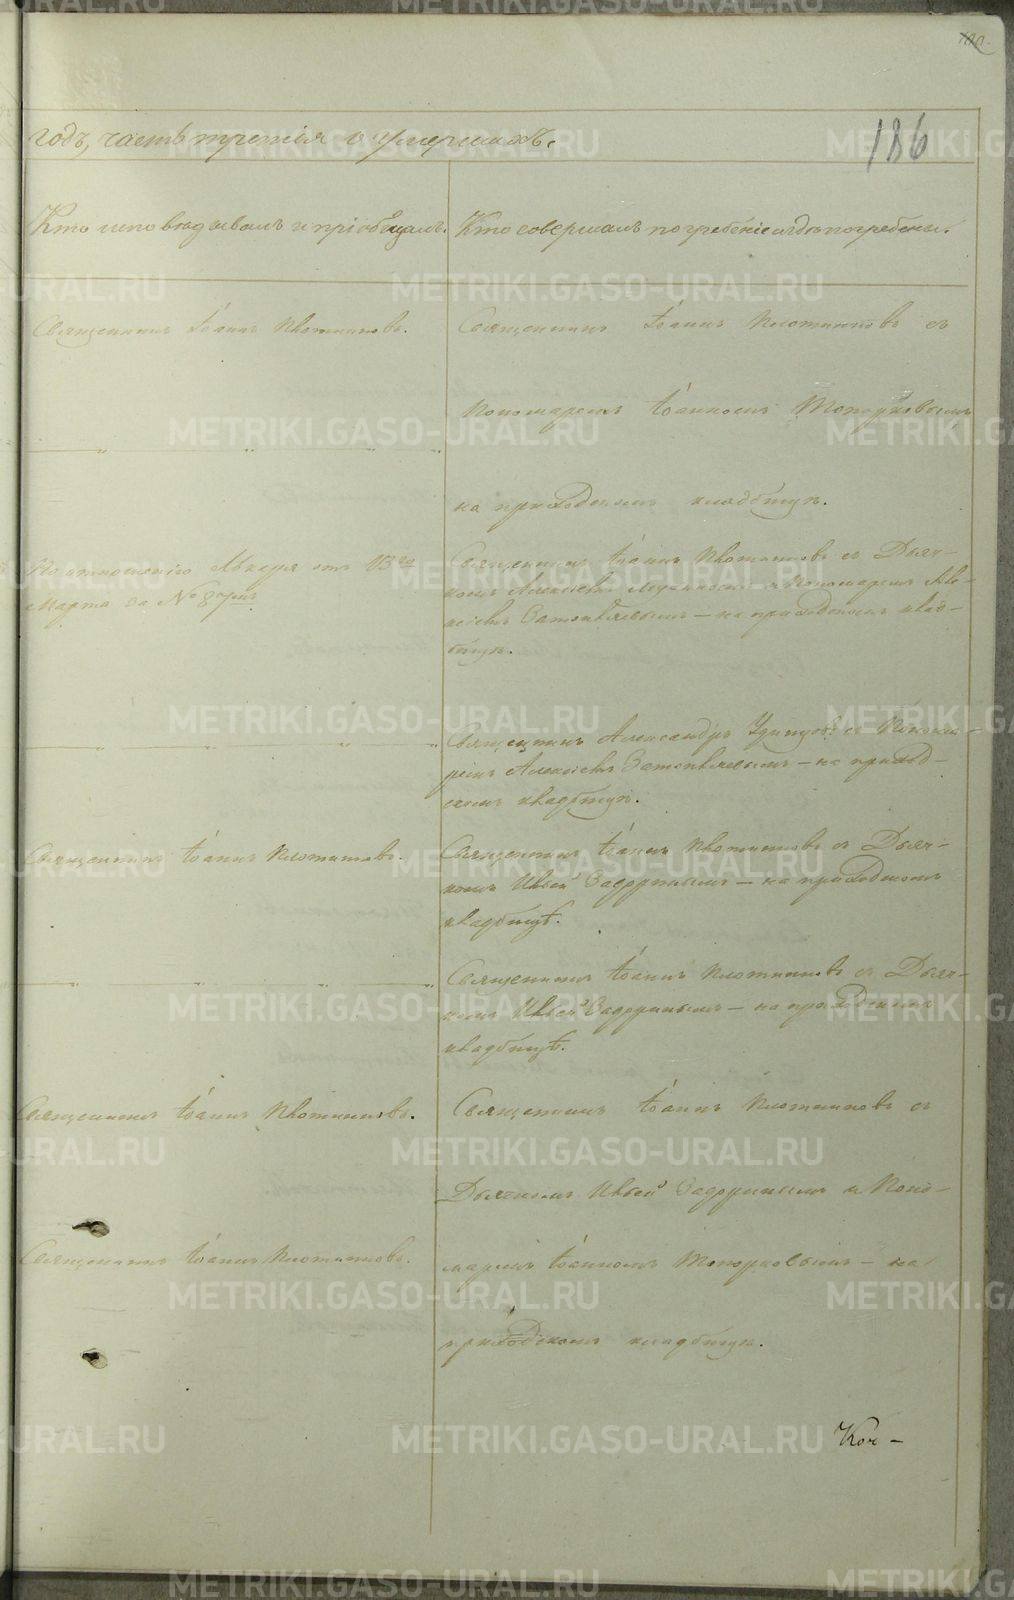 186
годъ, часть третія о умершихъ.
Кто исповѣдывалъ и пріобщалъ.
Кто совершалъ погребеніе и гдѣ погребены.
Священникъ Іоаннъ Плотниковъ.
Священникъ Іоаннъ Плотниковъ съ
Пономаремъ Іоанномъ Топорковымъ
на приходскомъ кладбищѣ.
По отношенію Лѣкаря отъ 13го
Марта за № 87мъ
Священникъ Іоаннъ Плотниковъ съ Дьяч-
комъ и Пономаремъ Але-
ксѣемъ на приходскомъ клад-
бищѣ.
Священникъ Александръ съ Понома-
ремъ Алексѣемъ — на приход-
скомъ кладбищѣ.
Священникъ Іоаннъ Плотниковъ.
Священникъ Іоаннъ Плотниковъ съ Дьяч-
комъ Задоринымъ — на приходскомъ
кладбищѣ.
Священникъ Іоаннъ Плотниковъ съ Дьяч-
комъ Задоринымъ — на приходскомъ
кладбищѣ.
Священникъ Іоаннъ Плотниковъ.
Священникъ Іоаннъ Плотниковъ съ
Дьячкомъ Задоринымъ и Поно-
Священникъ Іоаннъ Плотниковъ.
маремъ Іоанномъ Топорковымъ — на
приходскомъ кладбищѣ.
METRIKI.GASO-URAL.RU